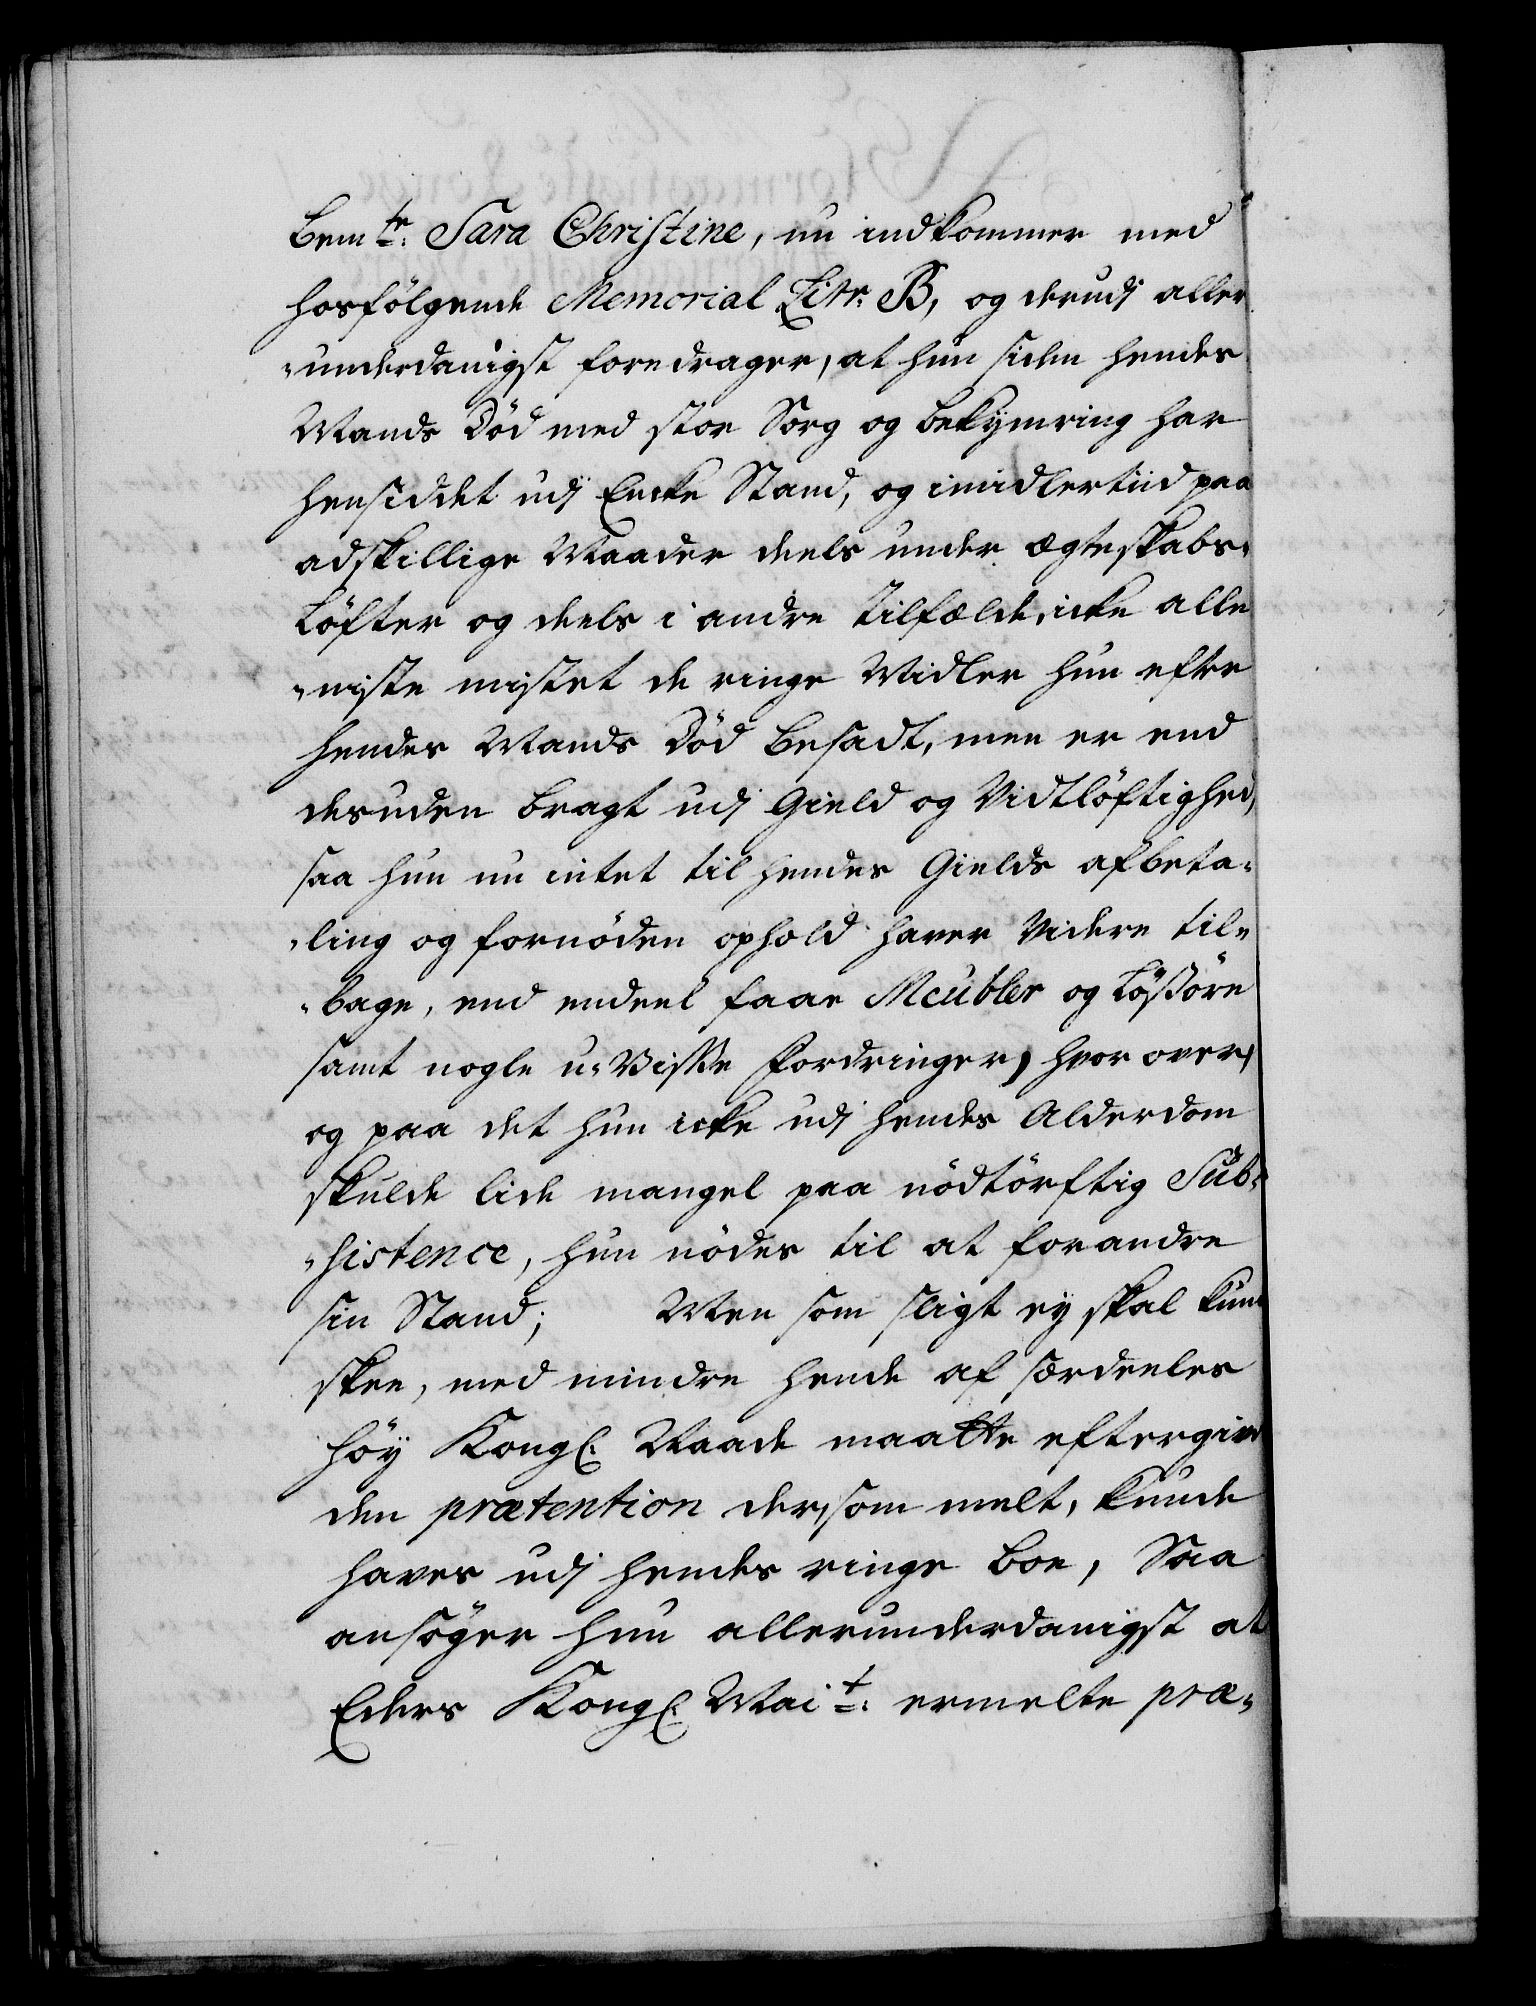 bemte: Sara Christine, nu indkommer med
hosfölgende Memorial Litr: B, og derudj aller
„underdanigst foredrager, at hun siden hendes
Mands Död med stor Sorg og bekymring har
hensiddet udj Encke Stand, og imidlertiid paa
adskillige Maader deels under ægteskabs-
Löfter og deels i andre tilfælde, icke alle
„niste mistet de ringe Midler hun efter
hendes Mands Död besadt, men er end
desuden bragt udj Gield og Vidtlöftighed,
saa hun nu intet til hendes Gields afbeta-
„ling og fornöden ophold haver videre til-
„bage, end endeel faae Meubler og Lösöre
samt nogle u-visse fordringer, hvor over,
og paa det hun icke udj hendes Alderdom
skulde lide mangel paa nödtörftig Sub-
„sistence, hun nödes til at forandre
sin Stand; Men som sligt ey skal kun
skee, med mindre hende af særdeeles
höy Kongl: Naade maatte eftergive
den prætention der, som melt, kunde
haves udj hendes ringe boe, Saa
ansöger hun allerunderdanigst at
Eders Kongl: Mait: ermelte præ-